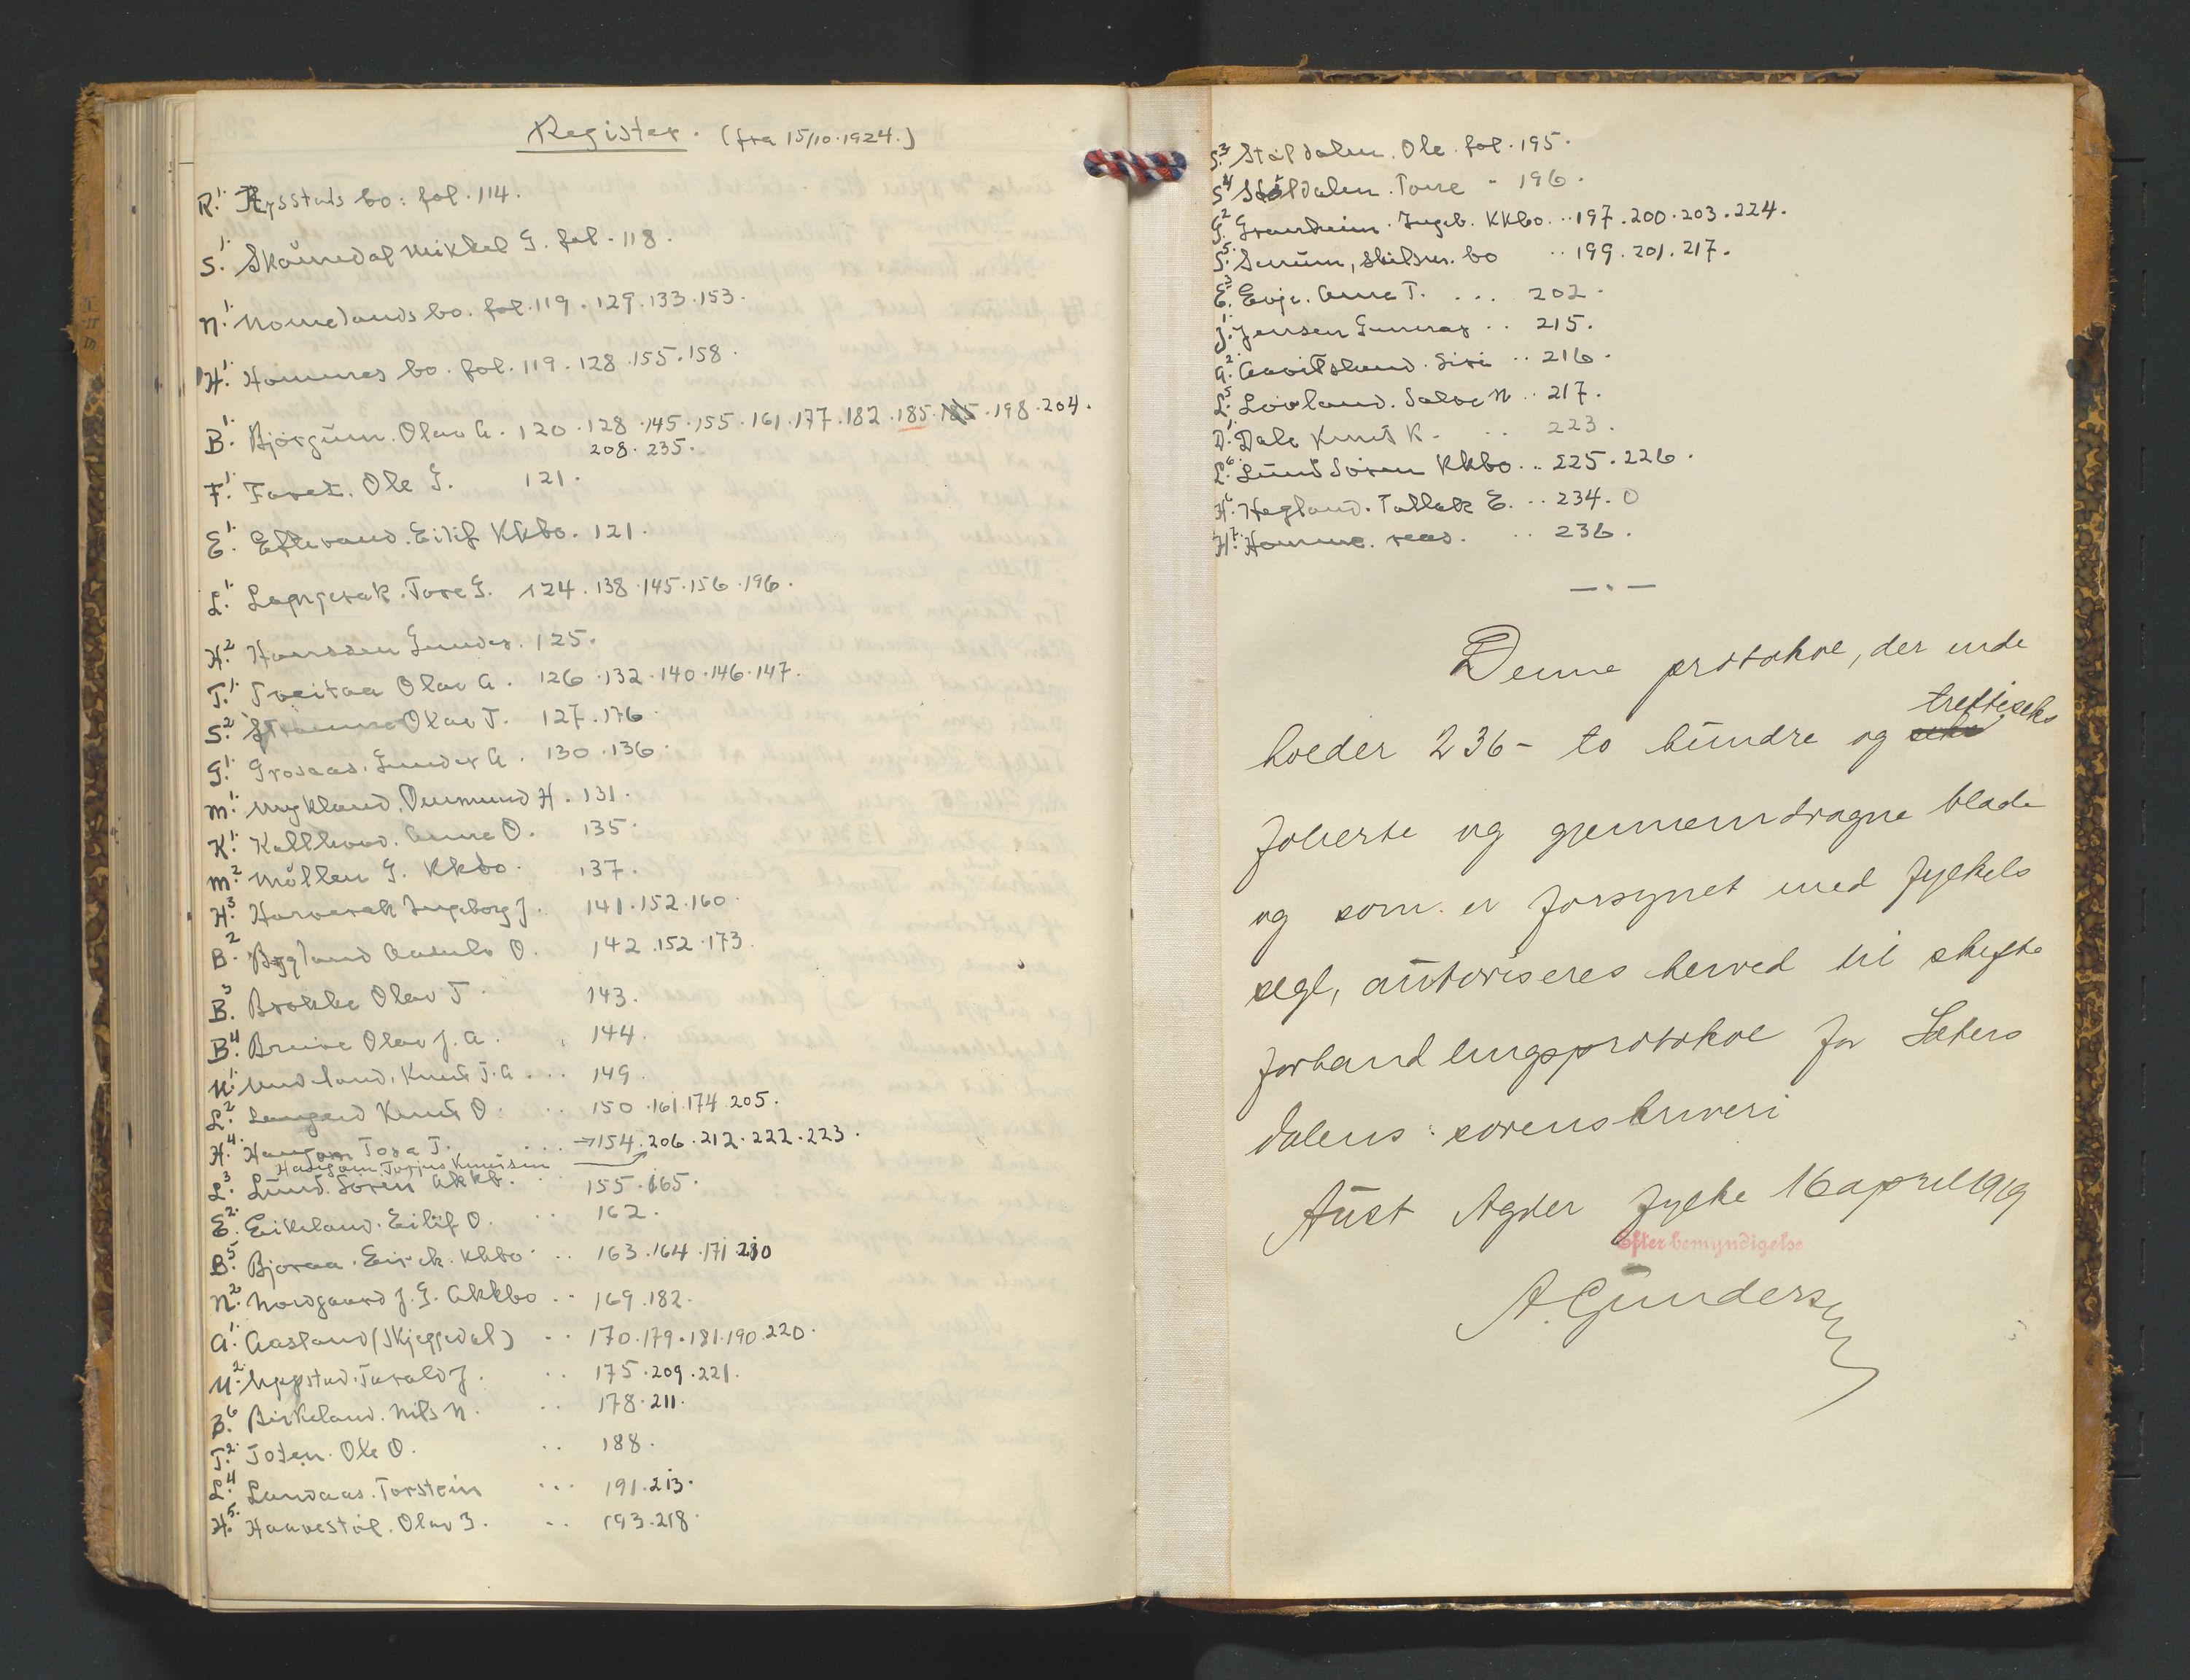 Register. (fra 15/10.1924.)
R.1. Rysstads bo: fol. 114.
S.1. Skåmedal Mikkel G. fol. 118.
N.1. Nomelands bo. fol. 119. 129. 133. 153.
H.1. Hommes bo. fol. 119. 128. 155. 158.
B.1. Bjørgum. Olav A. 120. 128. 145. 155. 161. 177. 182. 185. 185. 198. 204.
208. 235.
F.1. Ole G. 121.
E.1. Eilif Kkbo. 121.
L.1. Tore G. 124. 138. 145. 156. 196.
H.2. Hanssen Gunder. 125.
T.1. Tveitaa Olav A. 126. 132. 140. 146. 147.
S.2. Olav T. 127. 176.
G.1. Grosaas. Gunder A. 130. 136.
M.1. Mykland. H. 131.
K.1. Anne O. 135.
M.2. Møllen G. Kkbo. 137.
H.3. Ingeborg J. 141. 152. 160.
B.2. Bygland O. 142. 152. 173.
B.3. Brokke Olav T. 143.
B.4. Olav J. A. 144.
U.1. Knut T. A ... 149.
L.2. Langeid Knut O. .. 150. 161. 174. 205.
H.4. Haugom Tora T. ... 154. 206. 212. 222. 223.
Haugom Torjus Knutsen
L.3. Lund. Søren Akkb. .. 155. 165.
E.2. Eikeland. Eilif O. .. 162.
B.5. Bjoraa. Kkbo .. 163. 164. 171 210
N.2. Nordgaard J. G. Akkbo .. 169. 182.
A.1. Aasland (Skjeggedal) .. 170. 179. 181. 190. 220.
U.2. Uppstad. Tarald J. .. 175. 209. 221.
B.6. Birkeland. Nils N. .. 178. 211.
T.2. Ole O. .. 188.
L.4. Landaas. Torstein ... 191. 213.
H.5. Haavestøl. Olav .. 193. 218.
S.3. Støldalen. Ole. fol. 195.
S.4. Støldalen. Tone - 196.
G.2. Granheim. Ingeb. Kkbo. .. 197. 200. 203. 224.
S.5. bo .. 199. 201. 217.
E.3. Evje. Anne T. ... 202.
J.1. Jensen Gunnar .. 215.
A.2. Aavitsland. Siri .. 216.
L.5. Løvland. Salve N .. 217.
D.1. Dale Knut K. .. 223.
L.6. Lund Søren Kkbo .. 225. 226.
H.6. Hegland. Tallak E. .. 234. 0
H.7. Homme. reas. .. 236.
Denne protokol, der inde
trettiseks
holder 236 - to hundre og
folierte og gjennemdragne blade
og som er forsynet med fylkets
segl, autoriseres herved til skifte
forhandlingsprotokol for Sæters
dalens sorenskriveri
Aust Agder fylke 16 april 1919
Efter bemyndigelse
A. Gundersen